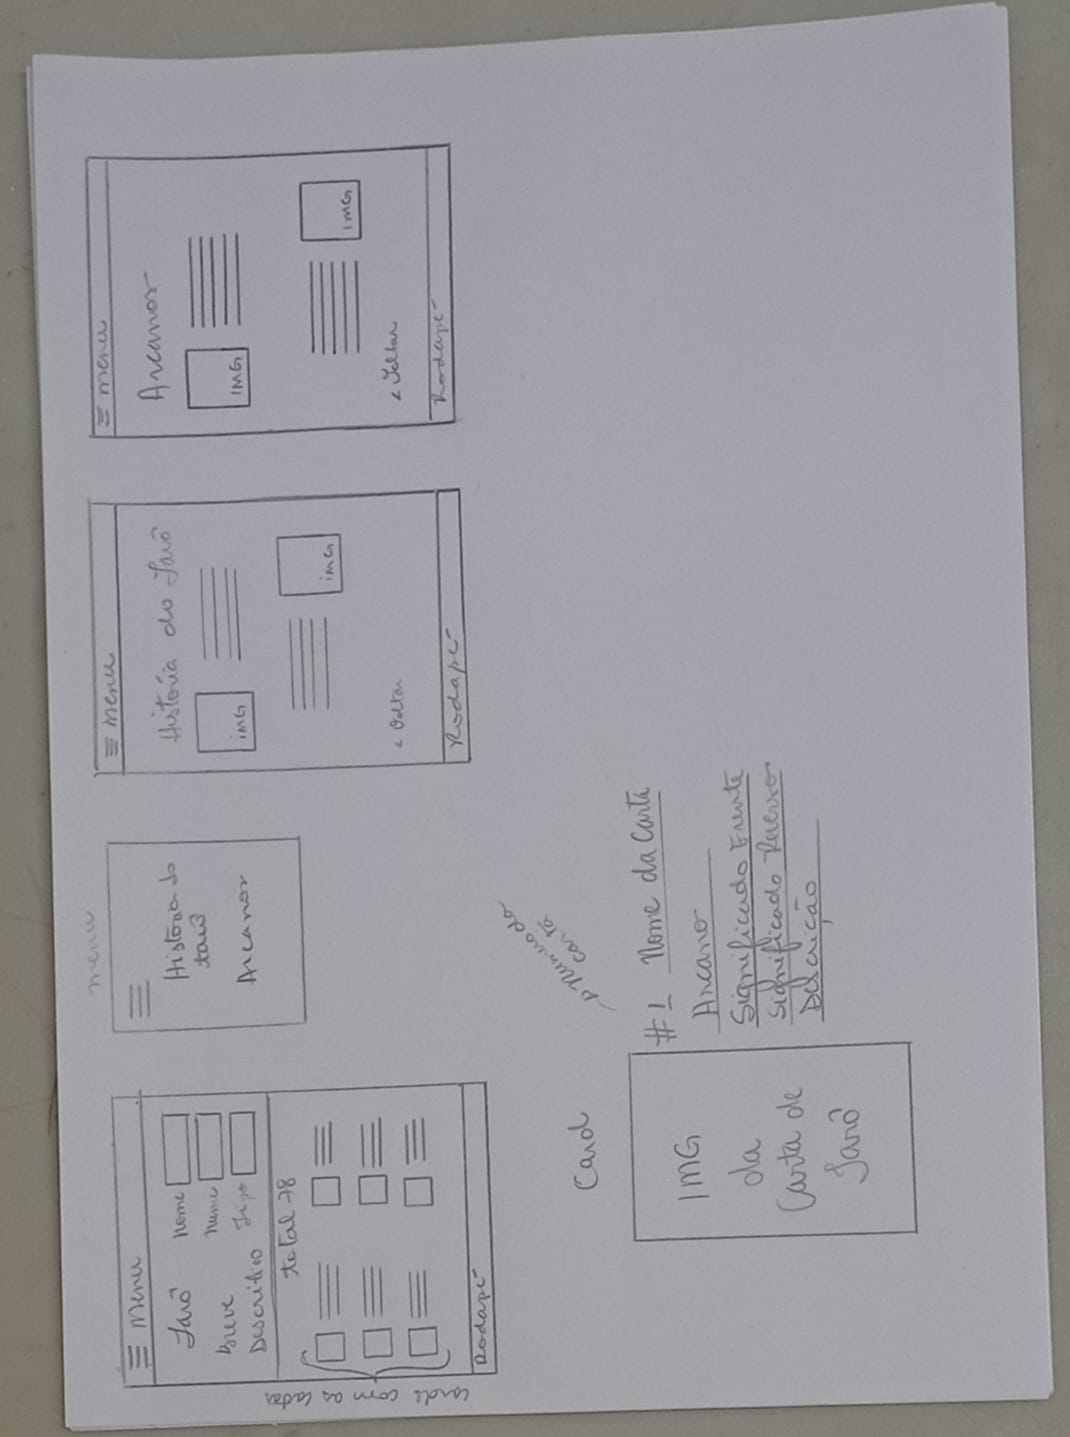 menu
Tarô
Nome
Breve
Nume
Descritivo
Tipo
total 78
cards com as cartas
Rodapé
menu
História do
tarô
Arcanos
menu
História do Tarô
IMG
IMG
< Voltar
Rodapé
menu
Arcanos
IMG
IMG
< Voltar
Rodapé
Card
Numero da
carta
IMG
da
Carta de
Tarô
#1 Nome da Carta
Arcano
Significado Frente
Significado Reverso
Descrição